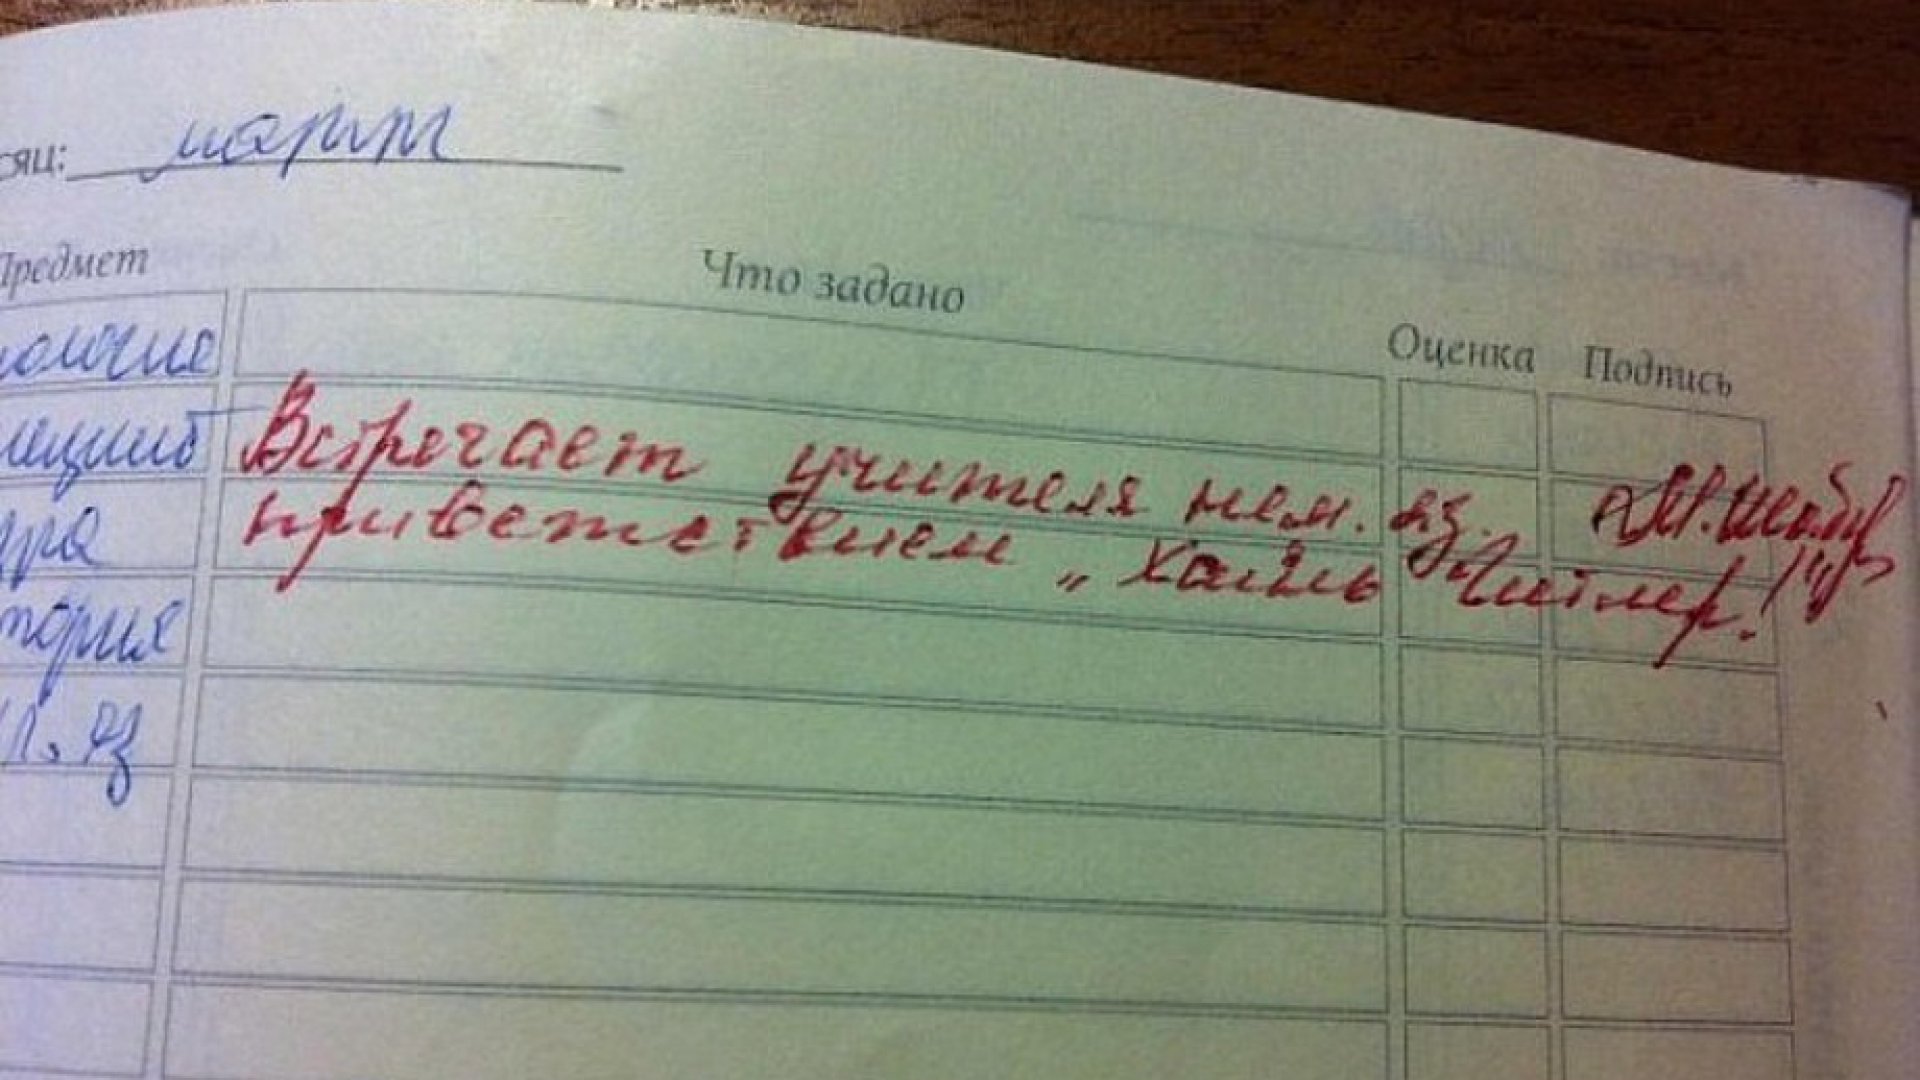 сяц: март
Предмет Что задано Оценка Подпись
Встречает учителя нем. яз.
приветствием „Хайль Гитлер!"
гра
тория
яз